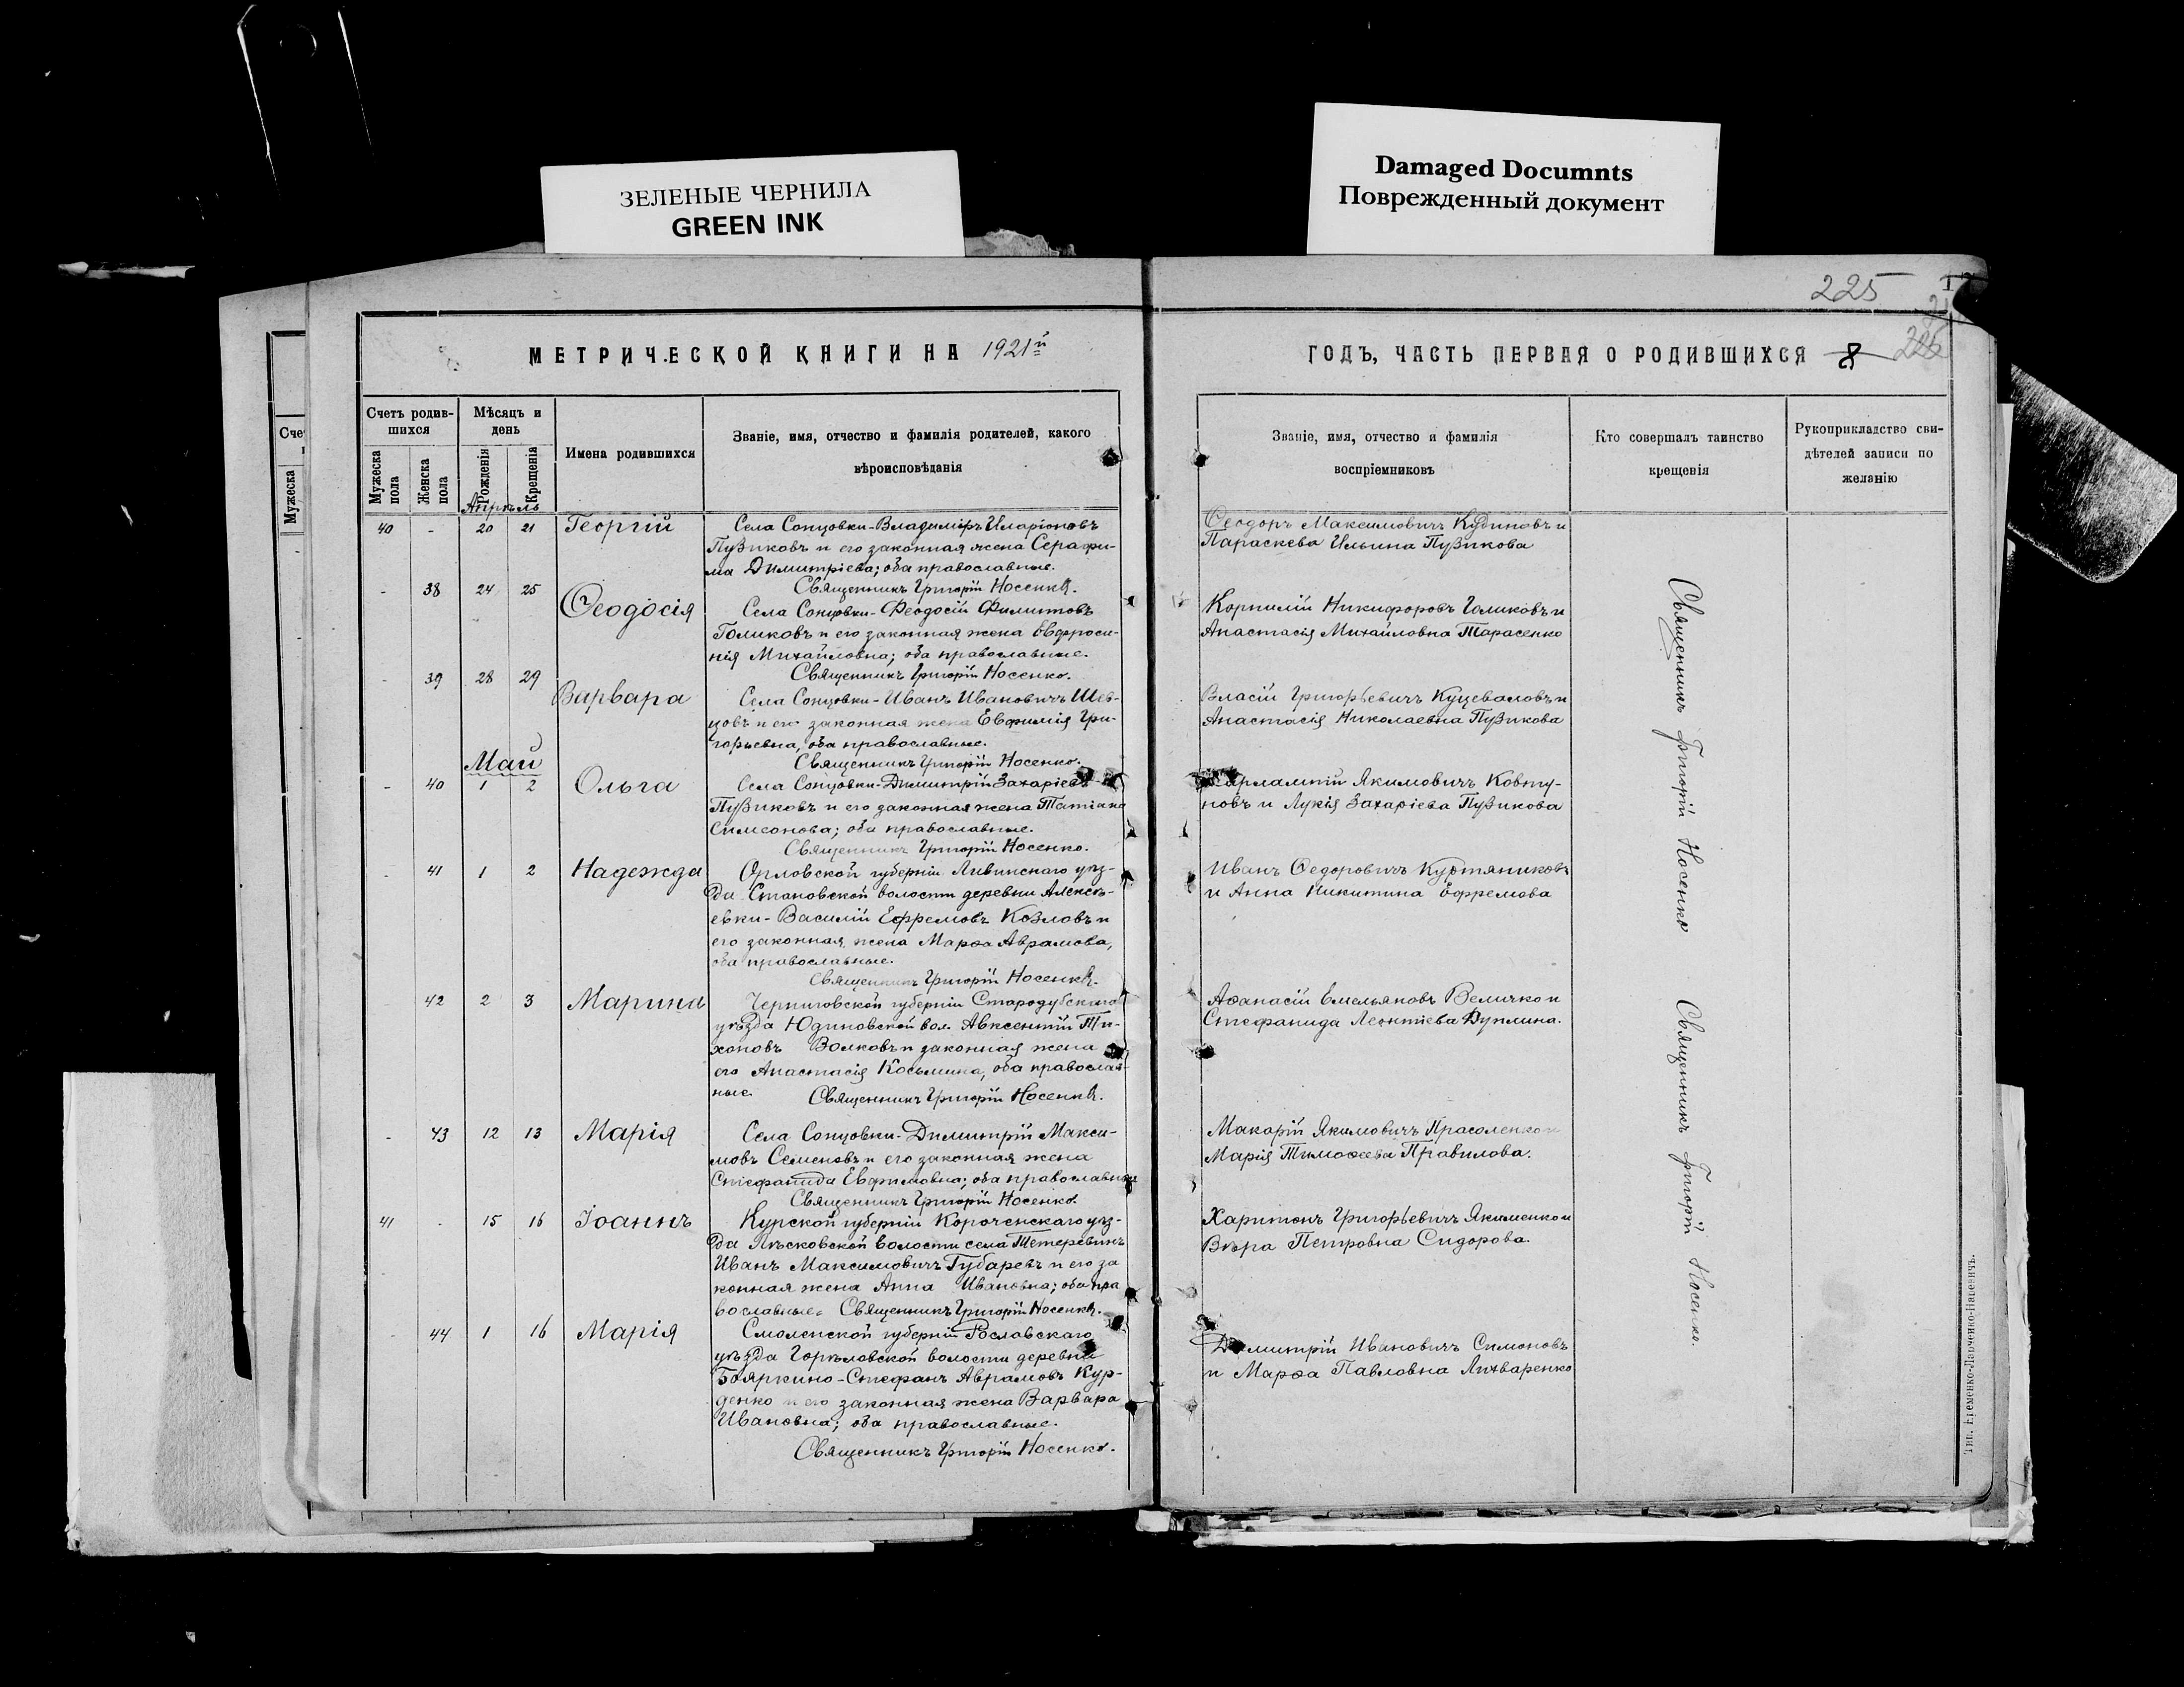 ЗЕЛЕНЫЕ ЧЕРНИЛА
GREEN INK
Damaged Documnts
Поврежденный документ
225
МЕТРИЧЕСКОЙ КНИГИ НА 1921й
ГОДЪ, ЧАСТЬ ПЕРВАЯ О РОДИВШИХСЯ 8
Счетъ родив-
шихся
Мужеска
пола
Женска
пола
Мѣсяцъ и
день
Рожденія
Крещенія
Имена родившихся
Званіе, имя, отчество и фамилія родителей, какого
вѣроисповѣданія
Званіе, имя, отчество и фамилія
воспріемниковъ
Кто совершалъ таинство
крещенія
Рукоприкладство сви-
дѣтелей записи по
желанію
Мужеска
Апрѣль
40 - 20 21 Георгій
Села Сонцовки-Владиміръ Иларіоновъ
Пузиковъ и его законная жена Серафи-
ма Димитріева; оба православные.
Священникъ Григорій Носенко.
Ѳеодоръ Максимовичъ Кудиновъ и
Параскева Ильина Пузикова
- 38 24 25 Ѳеодосія
Села Сонцовки-Феодосій Филиповъ
Голиковъ и его законная жена Евфроси-
нія Михайловна; оба православные.
Священникъ Григорій Носенко.
Корнилій Никифоровъ Голиковъ и
Анастасія Михайловна Тарасенко
- 39 28 29 Варвара
Села Сонцовки-Иванъ Ивановичъ Шев-
цовъ и его законная жена Евфимія Гри-
горьевна, оба православные.
Священникъ Григорій Носенко.
Власій Григорьевичъ Куцеваловъ и
Анастасія Николаевна Пузикова
Май
- 40 1 2 Ольга
Села Сонцовки-Димитрій Захаріевъ
Пузиковъ и его законная жена Татіана
Симеонова; оба православные.
Священникъ Григорій Носенко.
Харлампій Якимовичъ Ковту-
новъ и Лукія Захаріева Пузикова
41 1 2 Надежда
Орловской губерніи Ливинскаго уѣз-
да Становской волости деревни Алексѣ-
евки-Василій Ефремовъ Козловъ и
его законная жена Марѳа Аврамова,
оба православные.
Священникъ Григорій Носенко.
Иванъ Ѳедоровичъ
и Анна Никитина Ефремова
42 2 3 Марина
Черниговской губерніи Стародубскаго
уѣзда Юдиновской вол. Авксентій Ти-
хоновъ Волковъ и законная жена
его Анастасія Косьмина, оба православ-
ные. Священникъ Григорій Носенко.
Аѳанасій Емельяновъ Величко и
Стефанида Леонтіева Дуплина.
- 43 12 13 Марія
Села Сонцовки-Димитрій Макси-
мовъ Семеновъ и его законная жена
Стефанида Евфимовна; оба православные
Священникъ Григорій Носенко.
Макарій Якимовичъ Прасоленко и
Марія Тимоѳеева Правилова.
41 - 15 16 Іоаннъ
Курской губерніи Короченскаго уѣз-
да Пѣсковской волости села Тетеревинъ
Иванъ Максимовичъ Губаревъ и его за
конная жена Анна Ивановна; оба пра
вославные. Священникъ Григорій Носенко.
Харитонъ Григорьевичъ Якименко и
Вѣра Петровна Сидорова.
- 44 1 16 Марія
Смоленской губерніи Рославскаго
уѣзда Горѣловской волости деревни
Бояркино-Стефанъ Аврамовъ Кур-
денко и его законная жена Варвара
Ивановна; оба православные.
Священникъ Григорій Носенко.
Димитрій Ивановичъ Симоновъ
и Марѳа Павловна Лихваренко
Священникъ Григорій Носенко
Священникъ Григорій Носенко.